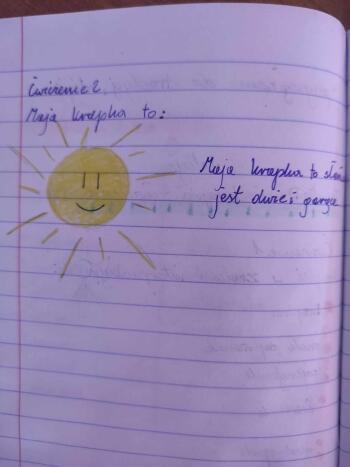 Ćwiczenie 2.
Moja kropka to:
Moja kropka to
jest duże i gorące